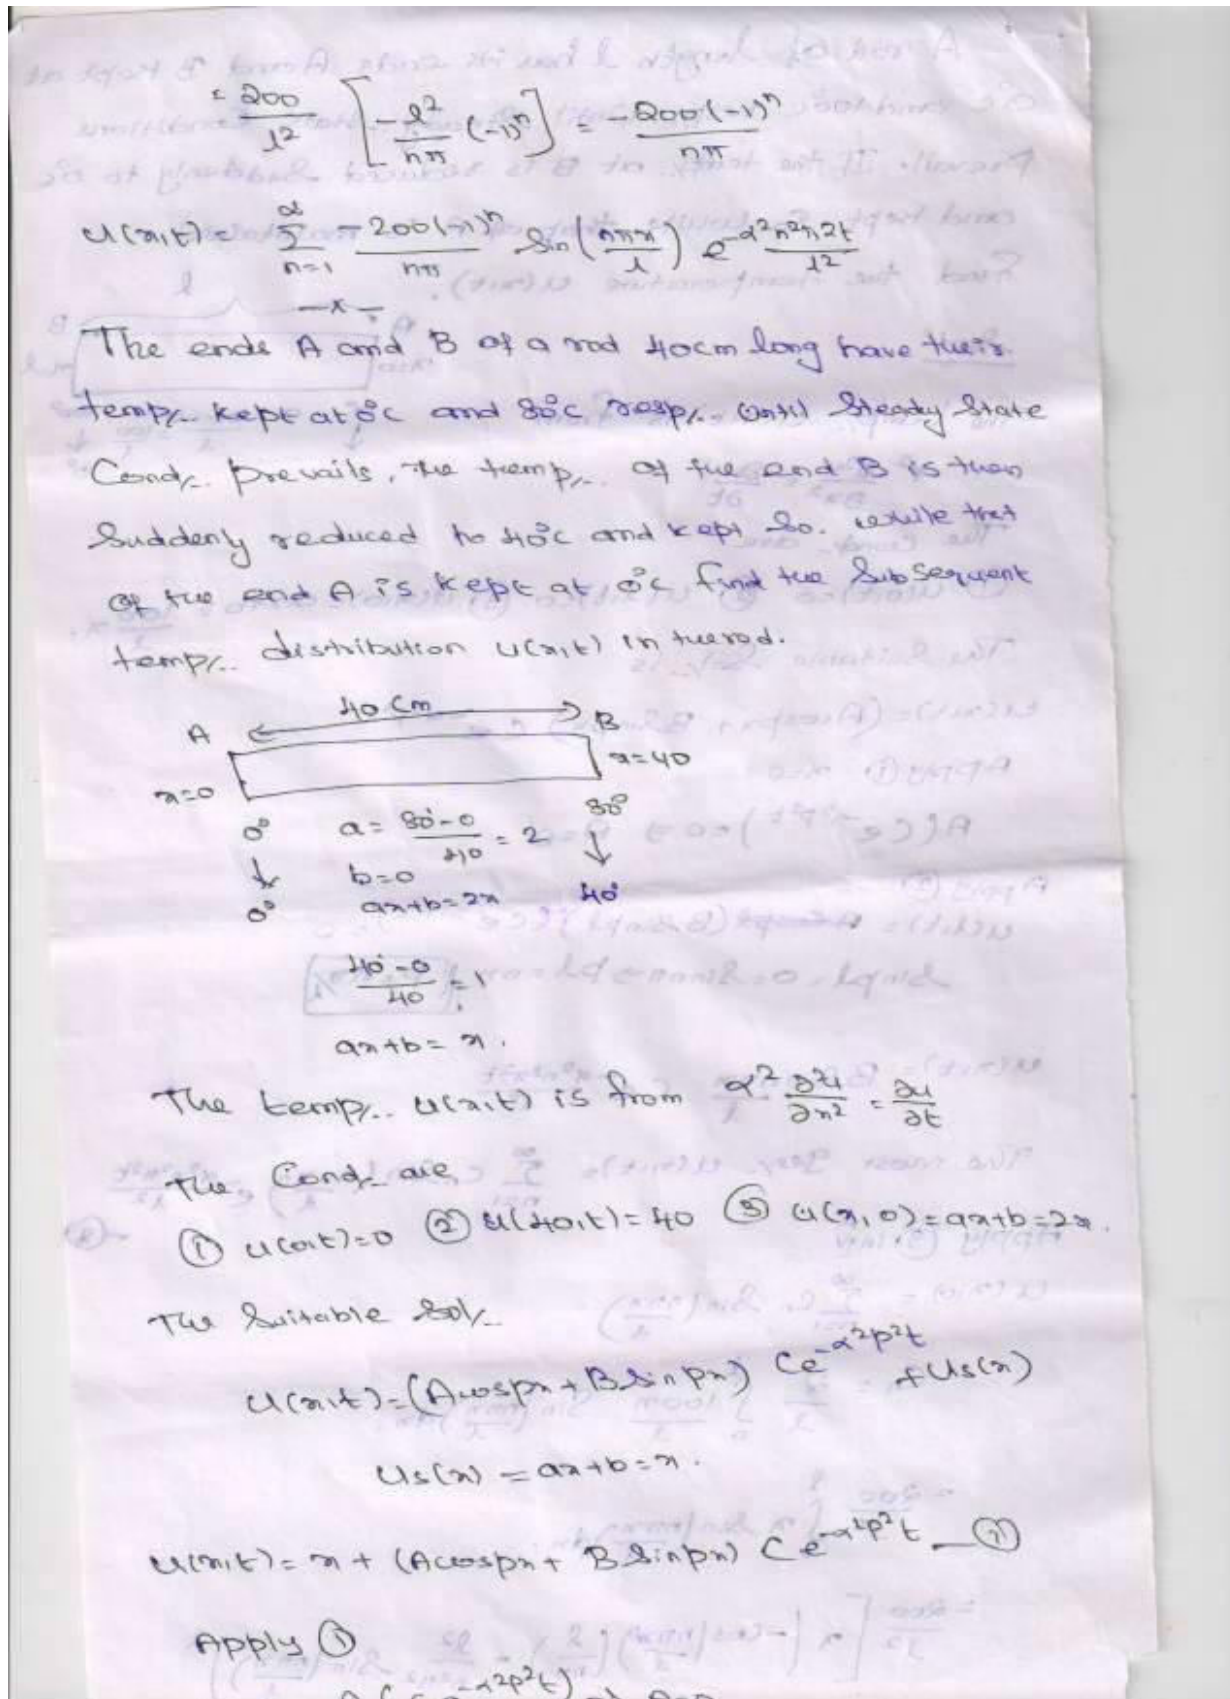 = 200/l² [ -l²/nπ (-1)ⁿ ] = -200(-1)ⁿ/nπ
u(x,t) = ∞ Σ n=1 -200(-1)ⁿ/nπ Sin(nπx/l) e^-α²n²π²t/l²
—x—
The ends A and B of a rod 40cm long have their
temp/. kept at 0°c and 80°c resp/. Until Steady State
Cond/. prevails. The temp/. of the end B is then
Suddenly reduced to 40°c and kept So. while that
of the end A is kept at 0°c find the Subsequent
temp/. distribution u(x,t) in the rod.
40 Cm
A B
x=0 x=40
0° a = 80-0/40 = 2 80°
↓ b=0 ↓
0° ax+b=2x 40°
40-0/40 = 1
ax+b = x.
The temp/. u(x,t) is from α² ∂²u/∂x² = ∂u/∂t
The Cond/. are
① u(0,t)=0 ② u(40,t)=40 ③ u(x,0)=ax+b=2x.
The Suitable Sol/.
u(x,t)=(Acospx+BSinpx) Ce^-α²p²t + Us(x)
Us(x) = ax+b=x.
u(x,t)= x + (Acospx + BSinpx) Ce^-α²p²t —①
Apply ①